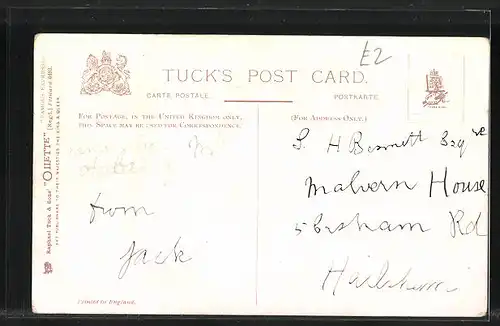 £2
TUCK'S POST CARD.
CARTE POSTALE.
POSTKARTE.
FOR POSTAGE, IN THE UNITED KINGDOM ONLY,
THIS SPACE MAY BE USED FOR CORRESPONDENCE.
(FOR ADDRESS ONLY.)
Raphael Tuck & Sons' "OILETTE" [Regd.] Postcard
ART PUBLISHERS TO THEIR MAJESTIES THE KING & QUEEN.
from
Jack
S. H Bennett Esqre
Malvern House
Rd
Hailsham
Printed in England.